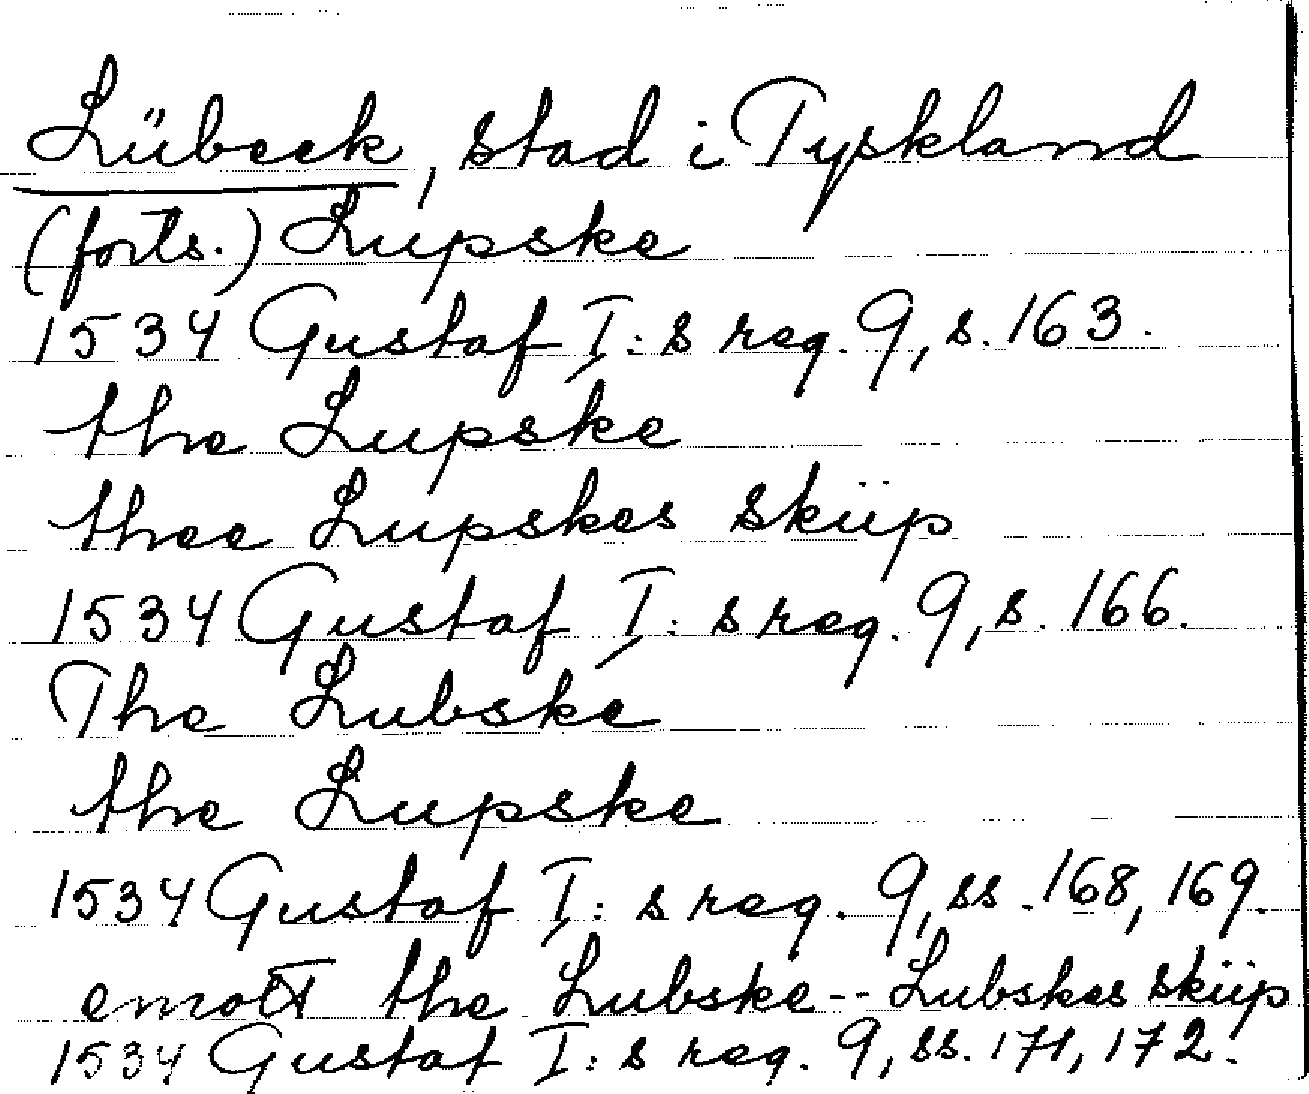 Lübeck, stad i Tyskland
(forts.) Lupske
1534 Gustaf I:s reg. 9, s. 163.
the Lupske
thee Lupskes sküp
1534 Gustaf I:s reg. 9, s. 166.
The Lubske
the Lupske
1534 Gustaf I:s reg. 9, ss. 168, 169.
emott the Lubske -- Lubskes sküp
1534 Gustaf I:s reg. 9, ss. 171, 172.